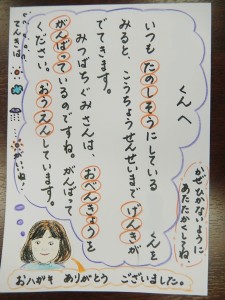 くんへ
いつもたのしそうにしている　くんを
みると、こうちょうせんせいまでげんきが
でてきます。
みつばちぐみさんは、おべんきょうを
がんばっているのですね。がんばって
ください。おうえんしています。
かぜひかないように
あたたかくしてね。
おハガキ ありがとう ございました。